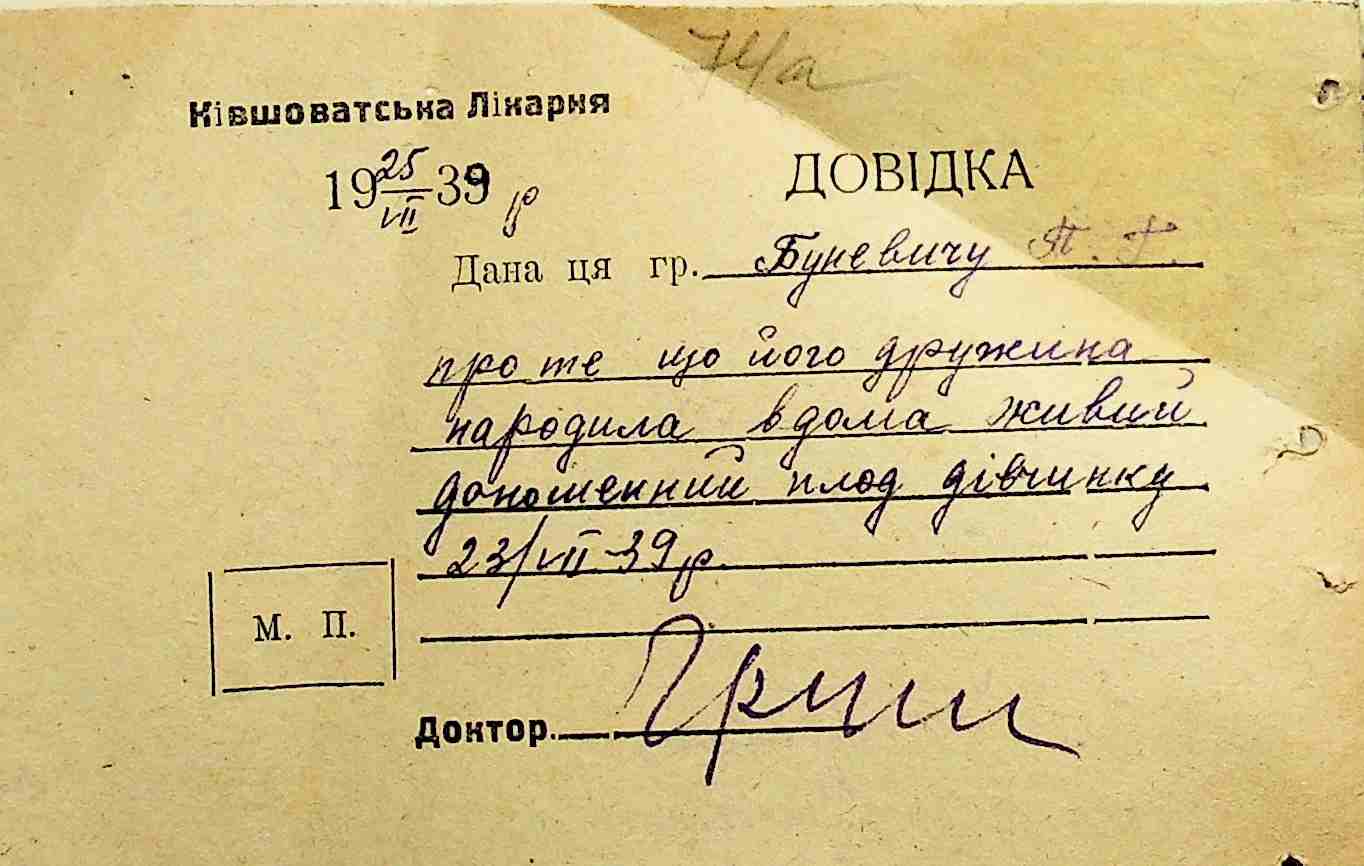 74/а
Ківшоватська Лікарня
19 25/VII 39 р
ДОВІДКА
Дана ця гр. Буневичу П. Г.
про те що його дружина
народила вдома живий
доношенний плод дівчинку
23/VII-39 р.
М. П.
Доктор